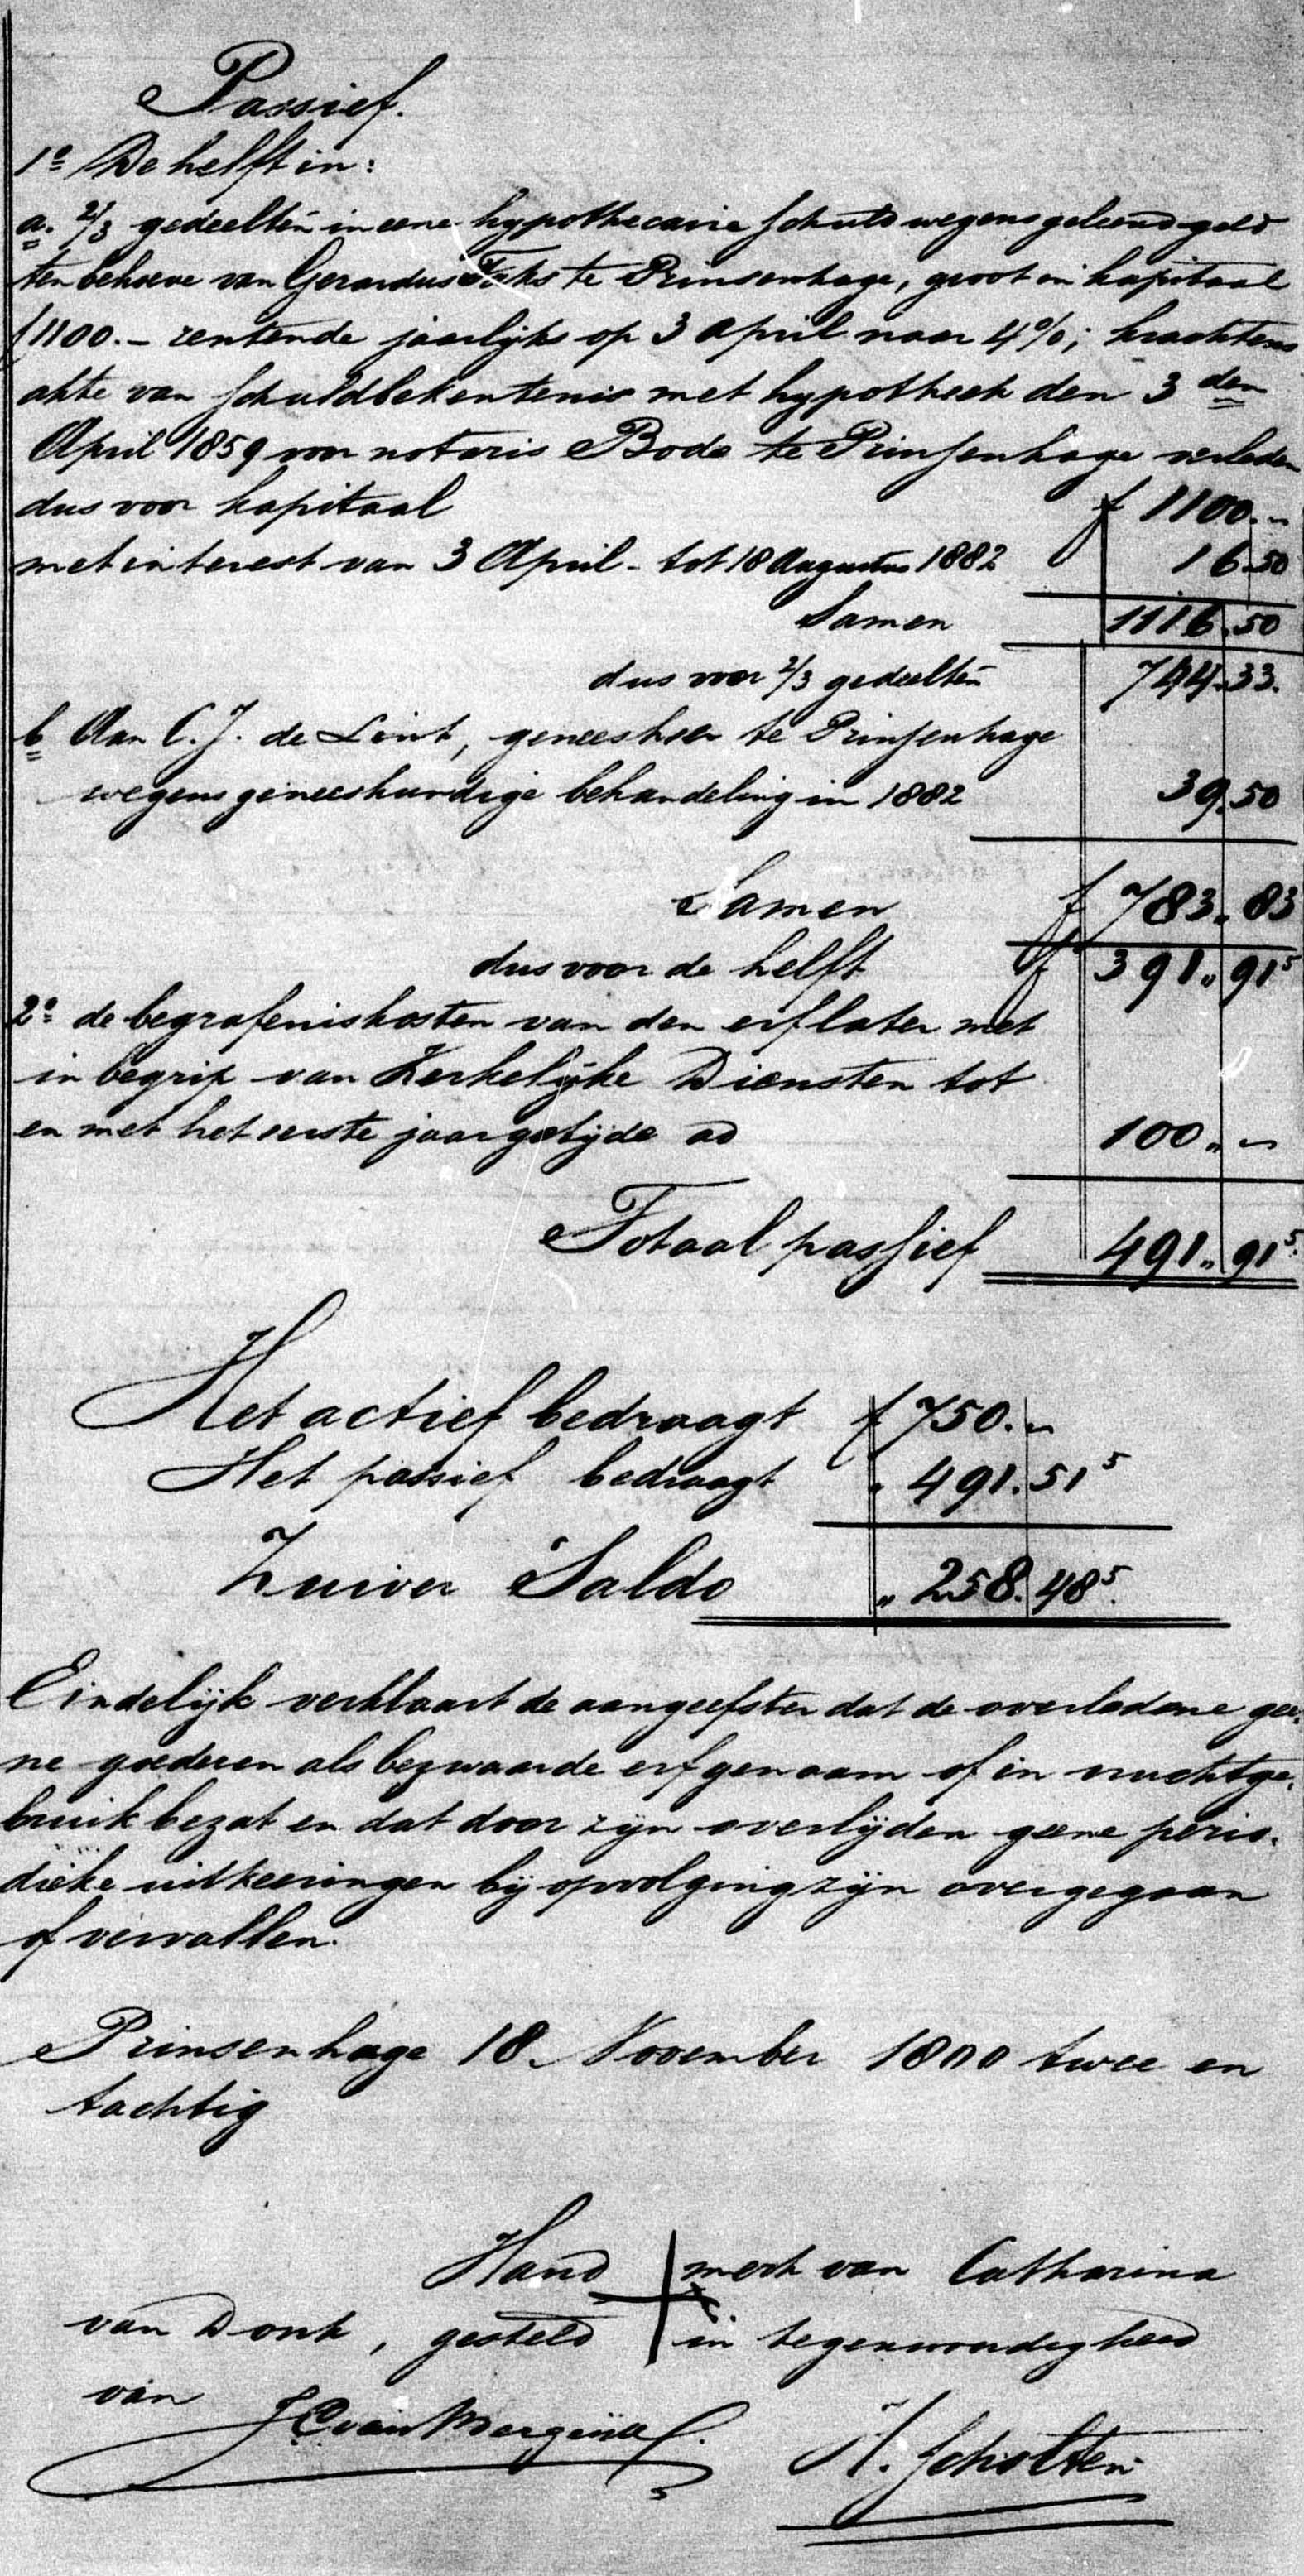 Passief.
1º De helft in:
a. 2/3 gedeelten in eene hypothecaire schuld wegens geleend geld
ten behoeve van Gerardus te Prinsenhage, groot in kapitaal
f 1100.- rentende jaarlijks op 3 april naar 4%; krachtens
akte van schuldbekentenis met hypotheek den 3 den
April 1859 voor notaris Bode te Prinsenhage verleden
dus voor kapitaal f 1100.-
met interest van 3 April - tot 18 Augustus 1882 16.50
Samen 1116.50
dus voor 2/3 gedeelten 744.33.
b Aan C.J. de Lint, geneesheer te Prinsenhage
wegens geneeskundige behandeling in 1882 39.50
Samen f 783.83
dus voor de helft f 391.,91⁵
2º de begrafeniskosten van den erflater met
inbegrip van Kerkelijke Diensten tot
en met het eerste jaargetijde ad 100.,-
Totaal passief 491.,91⁵.
Het actief bedraagt f 750.-
Het passief bedraagt " 491.51⁵
Zuiver Saldo " 258.48⁵.
Eindelijk verklaart de aangeefster dat de overledene gee-
ne goederen als bezwaarde erfgenaam of in vruchtge-
bruik bezat en dat door zijn overlijden geene perio-
dieke uitkeeringen bij opvolging zijn overgegaan
of vervallen.
Prinsenhage 18 November 1800 twee en
tachtig
Hand merk van Catharina
van Donk, gesteld in tegenwoordigheid
van
H. Scholten